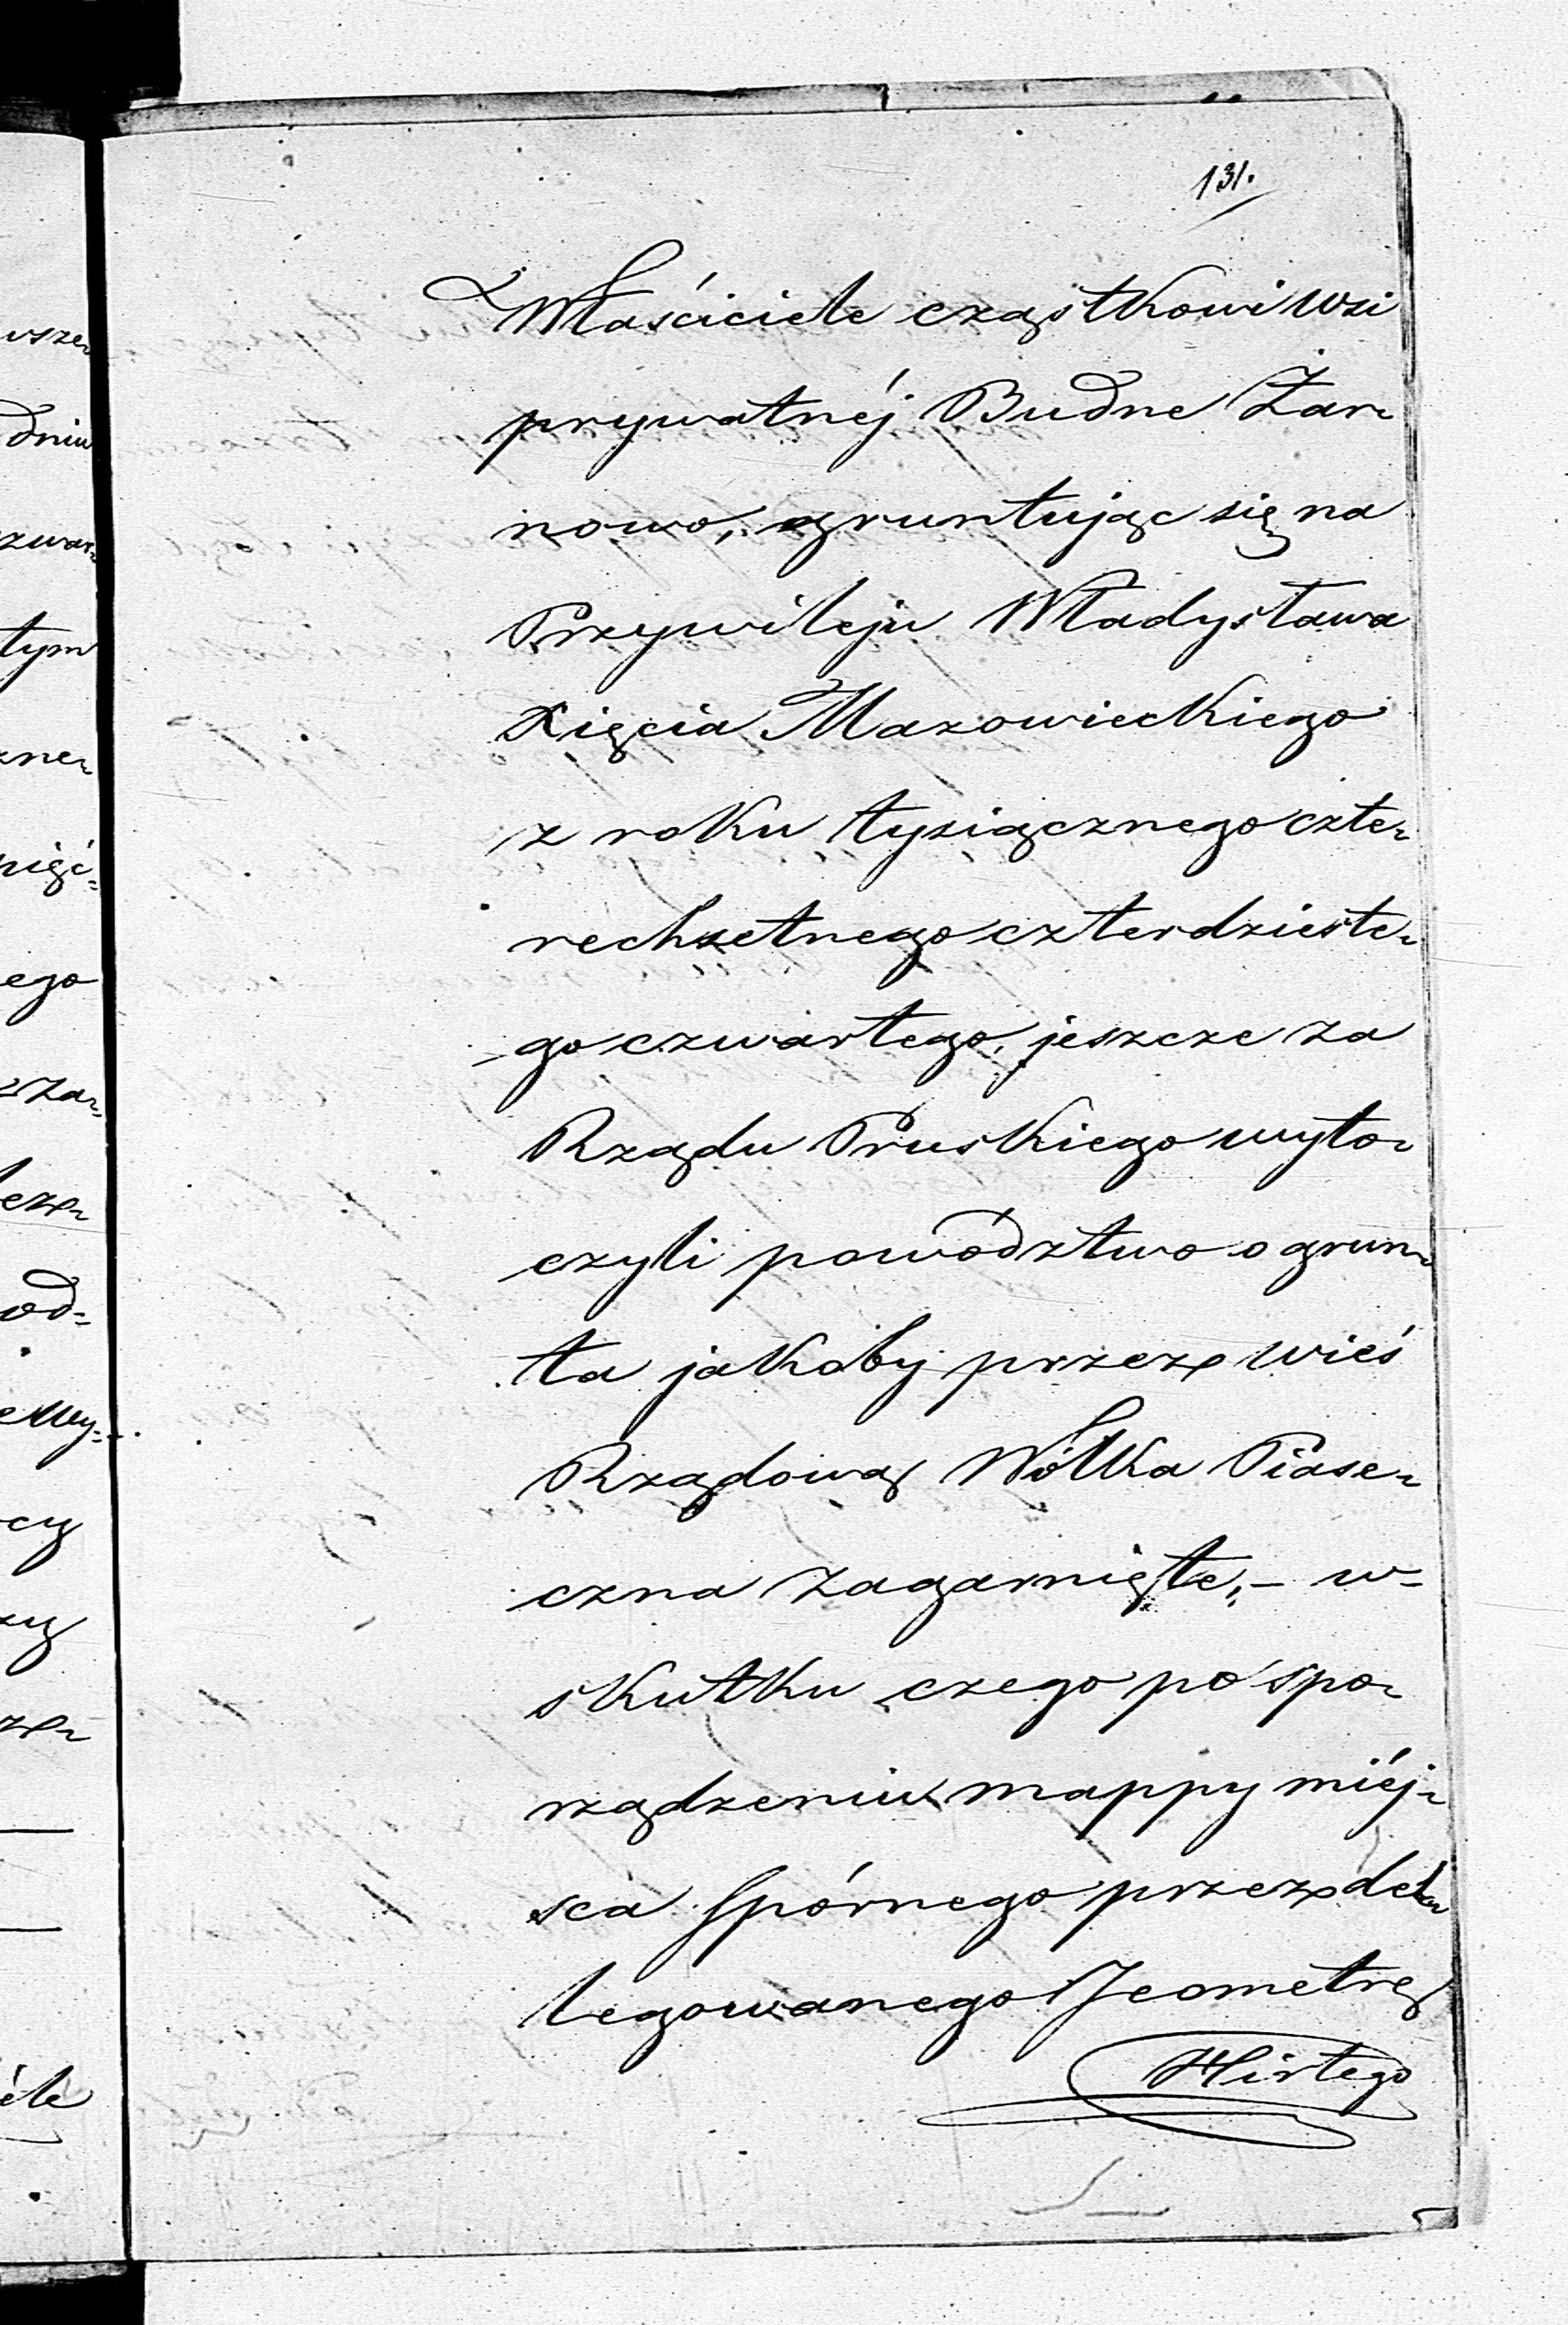 131.
Właściciele cząstkowi wsi
prywatnéj Budne Żar-
nowo, gruntując się na
Przywileju Władysława
Xięcia Mazowieckiego
z roku tysiącznego czte-
rechsetnego czterdzieste-
go czwartego, jeszcze za
Rządu Pruskiego wyto-
czyli powództwo o grun-
ta jakoby przez wieś
Rządową Wólka Piase-
czna zagarnięte, - w-
skutku czego po spo-
rządzeniu mappy miéj-
sca spórnego przez de-
legowanego Jeometrę
Hirtego
wsze-
dniu
zwar-
tym
zne-
pięć-
ego
za-
bez-
od-
wy-
cy
zy
éle